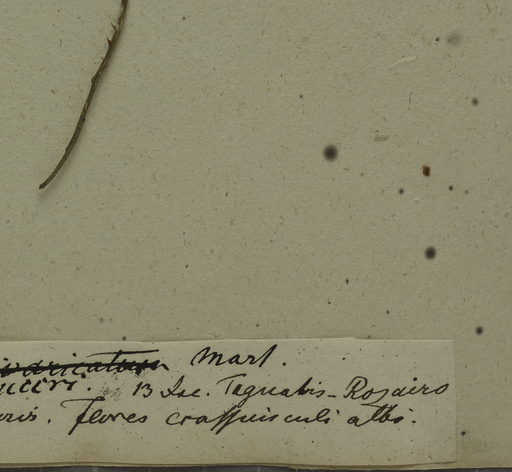 ivaricatum Mart.
ucceri. 13 Dec. Taguatis - Rosairo
oris. flores crassiusculi albi.